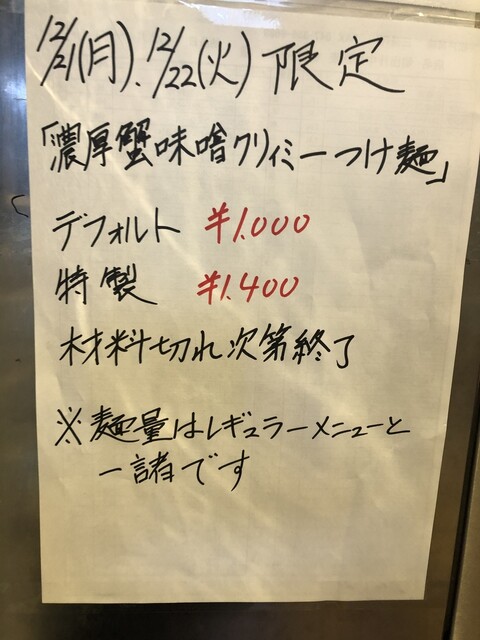 12/21(月)、12/22(火)限定
「濃厚蟹味噌クリィミーつけ麺」
デフォルト ¥1.000
特製 ¥1.400
材料切れ次第終了
※麺量はレギュラーメニューと
一諸です